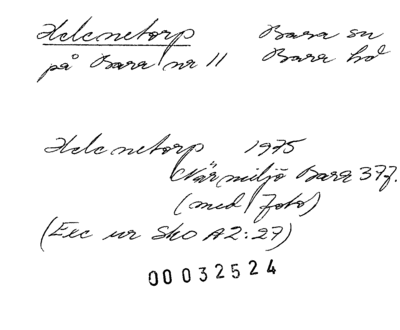 Helenetorp Bara sn
på Bara nr 11 Bara hd
Helenetorp 1975
Närmiljö Bara 37f.
(med foto)
(Exc ur Sko A2:27)
00032524